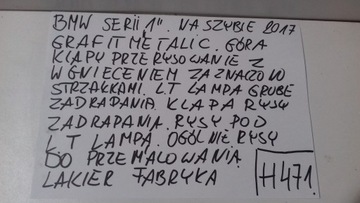 BMW SERII 1". NA SZYBIE 2017
GRAFIT METALIC. GÓRA
KLAPY PRZERYSOWANIE Z
WGNIECENIEM ZAZNACZONO
STRZAŁKAMI. LT LAMPA GRUBE
ZADRAPANIA. KLAPA RYSY
ZADRAPANIA. RYSY POD
LT LAMPĄ. OGÓLNIE RYSY
DO PRZEMALOWANIA
LAKIER FABRYKA
H471.